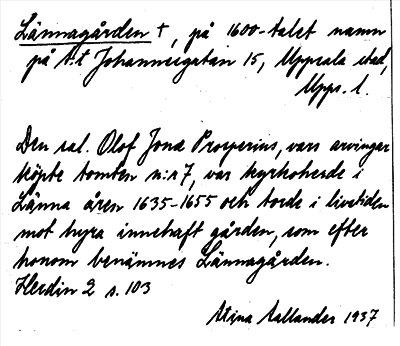 Lännagården †, på 1600-talet namn
på t.t Johannesgatan 15, Uppsala stad,
Upps. l.
Den sal. Olof Jonæ Prosperius, vars arvingar
köpte tomten n:r 7, var kyrkoherde i
Länna åren 1635-1655 och torde i livstiden
mot hyra innehaft gården, som efter
honom benämnes Lännagården.
Herdin 2 s. 103
Stina Sallander 1937